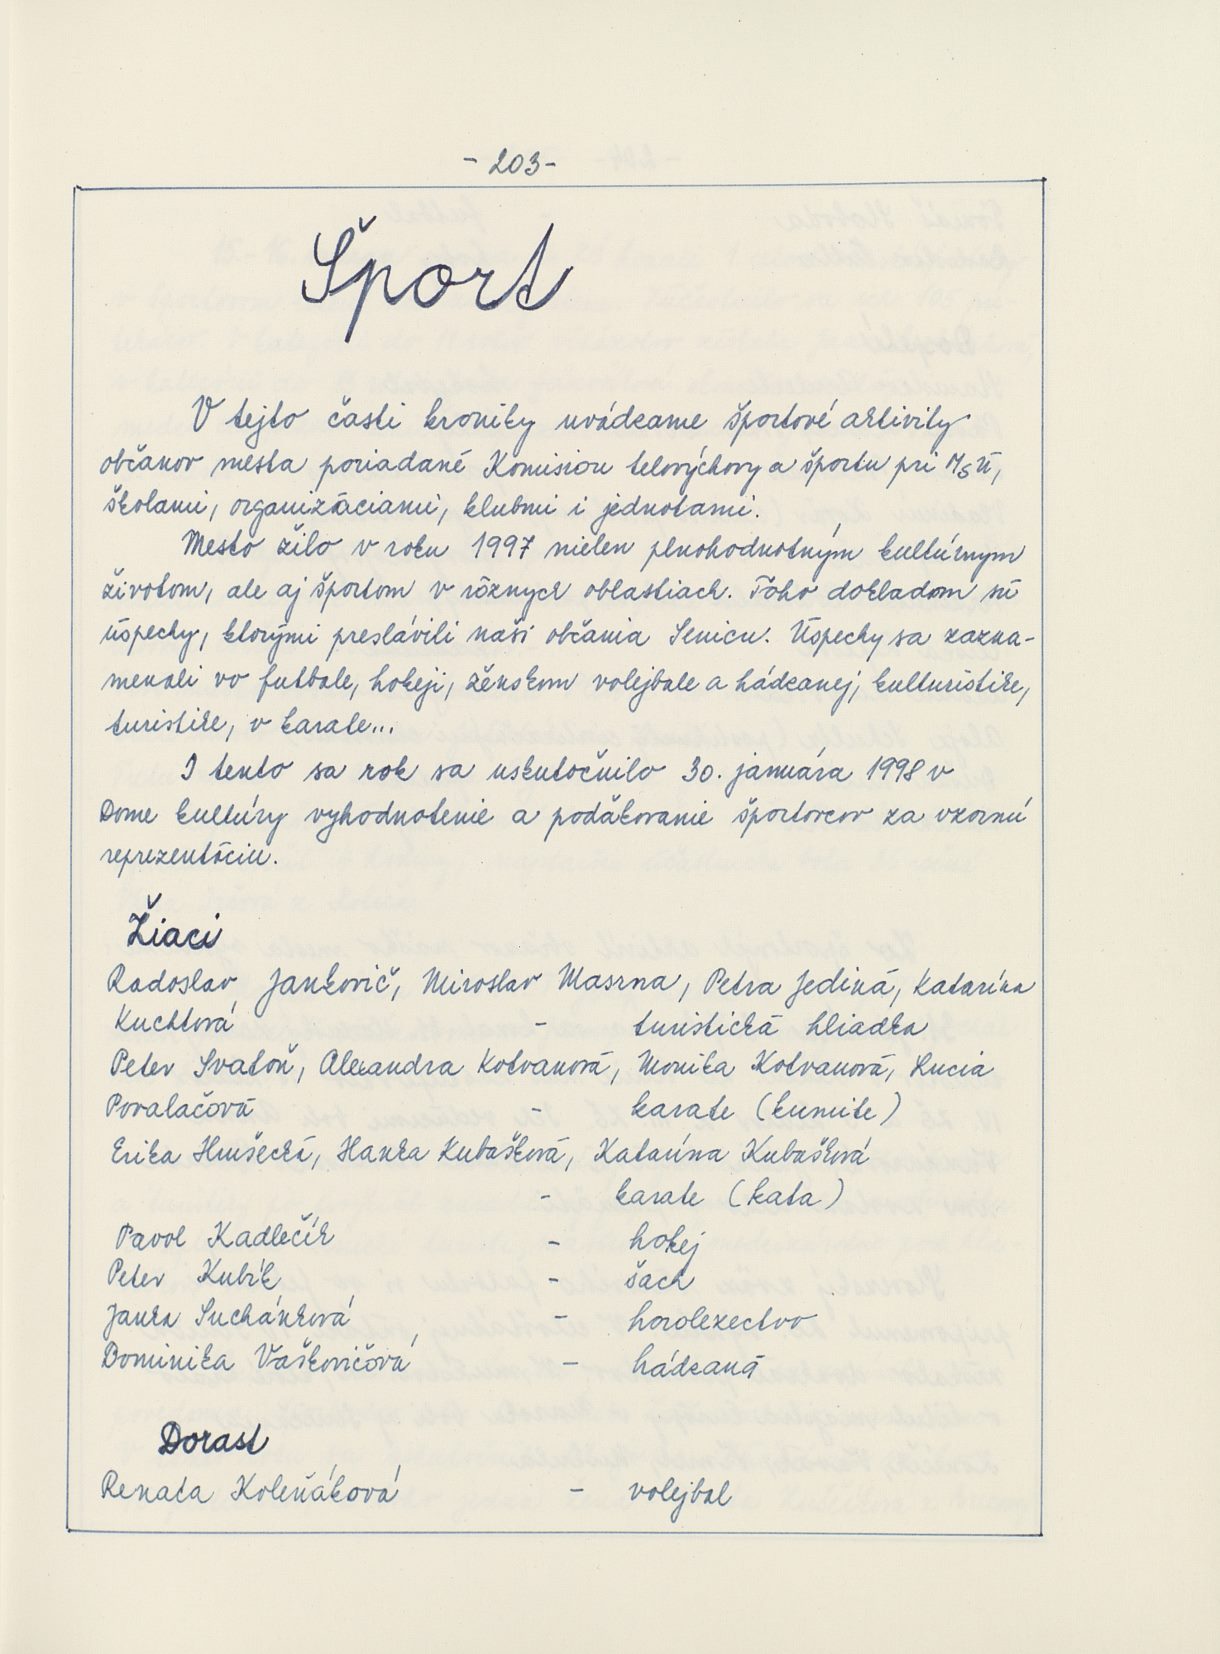 - 203 -
Šport
V tejto časti kroniky uvádzame športové aktivity
občanov mesta poriadané Komisiou telovýchovy a športu pri MsÚ,
školami, organizáciami, klubmi i jednotami.
Mesto žilo v roku 1997 nielen plnohodnotným kultúrnym
životom, ale aj športom v rôznych oblastiach. Toho dokladom sú
úspechy, ktorými preslávili naši občania Senicu. Úspechy sa zazna-
menali vo futbale, hokeji, ženskom volejbale a hádzanej, kulturistike,
turistike, v karate...
I tento sa rok sa uskutočnilo 30. januára 1998 v
Dome kultúry vyhodnotenie a poďakovanie športovcov za vzornú
reprezentáciu.
Žiaci
Radoslav Jankovič, Miroslav Masrna, Petra Jediná, Katarína
Kuchtová - turistická hliadka
Peter Svatoň, Alexandra Kotvanová, Monika Kotvanová, Lucia
Povalačová - karate (kumite)
Erika Hrušecká, Hanka Kubašková, Katarína Kubašková
- karate (kata)
Pavol Kadlečík - hokej
Peter Kubík - šach
Janka Suchánková - horolezectvo
Dominika Vaškovičová - hádzaná
Dorast
Renata Koleňáková - volejbal